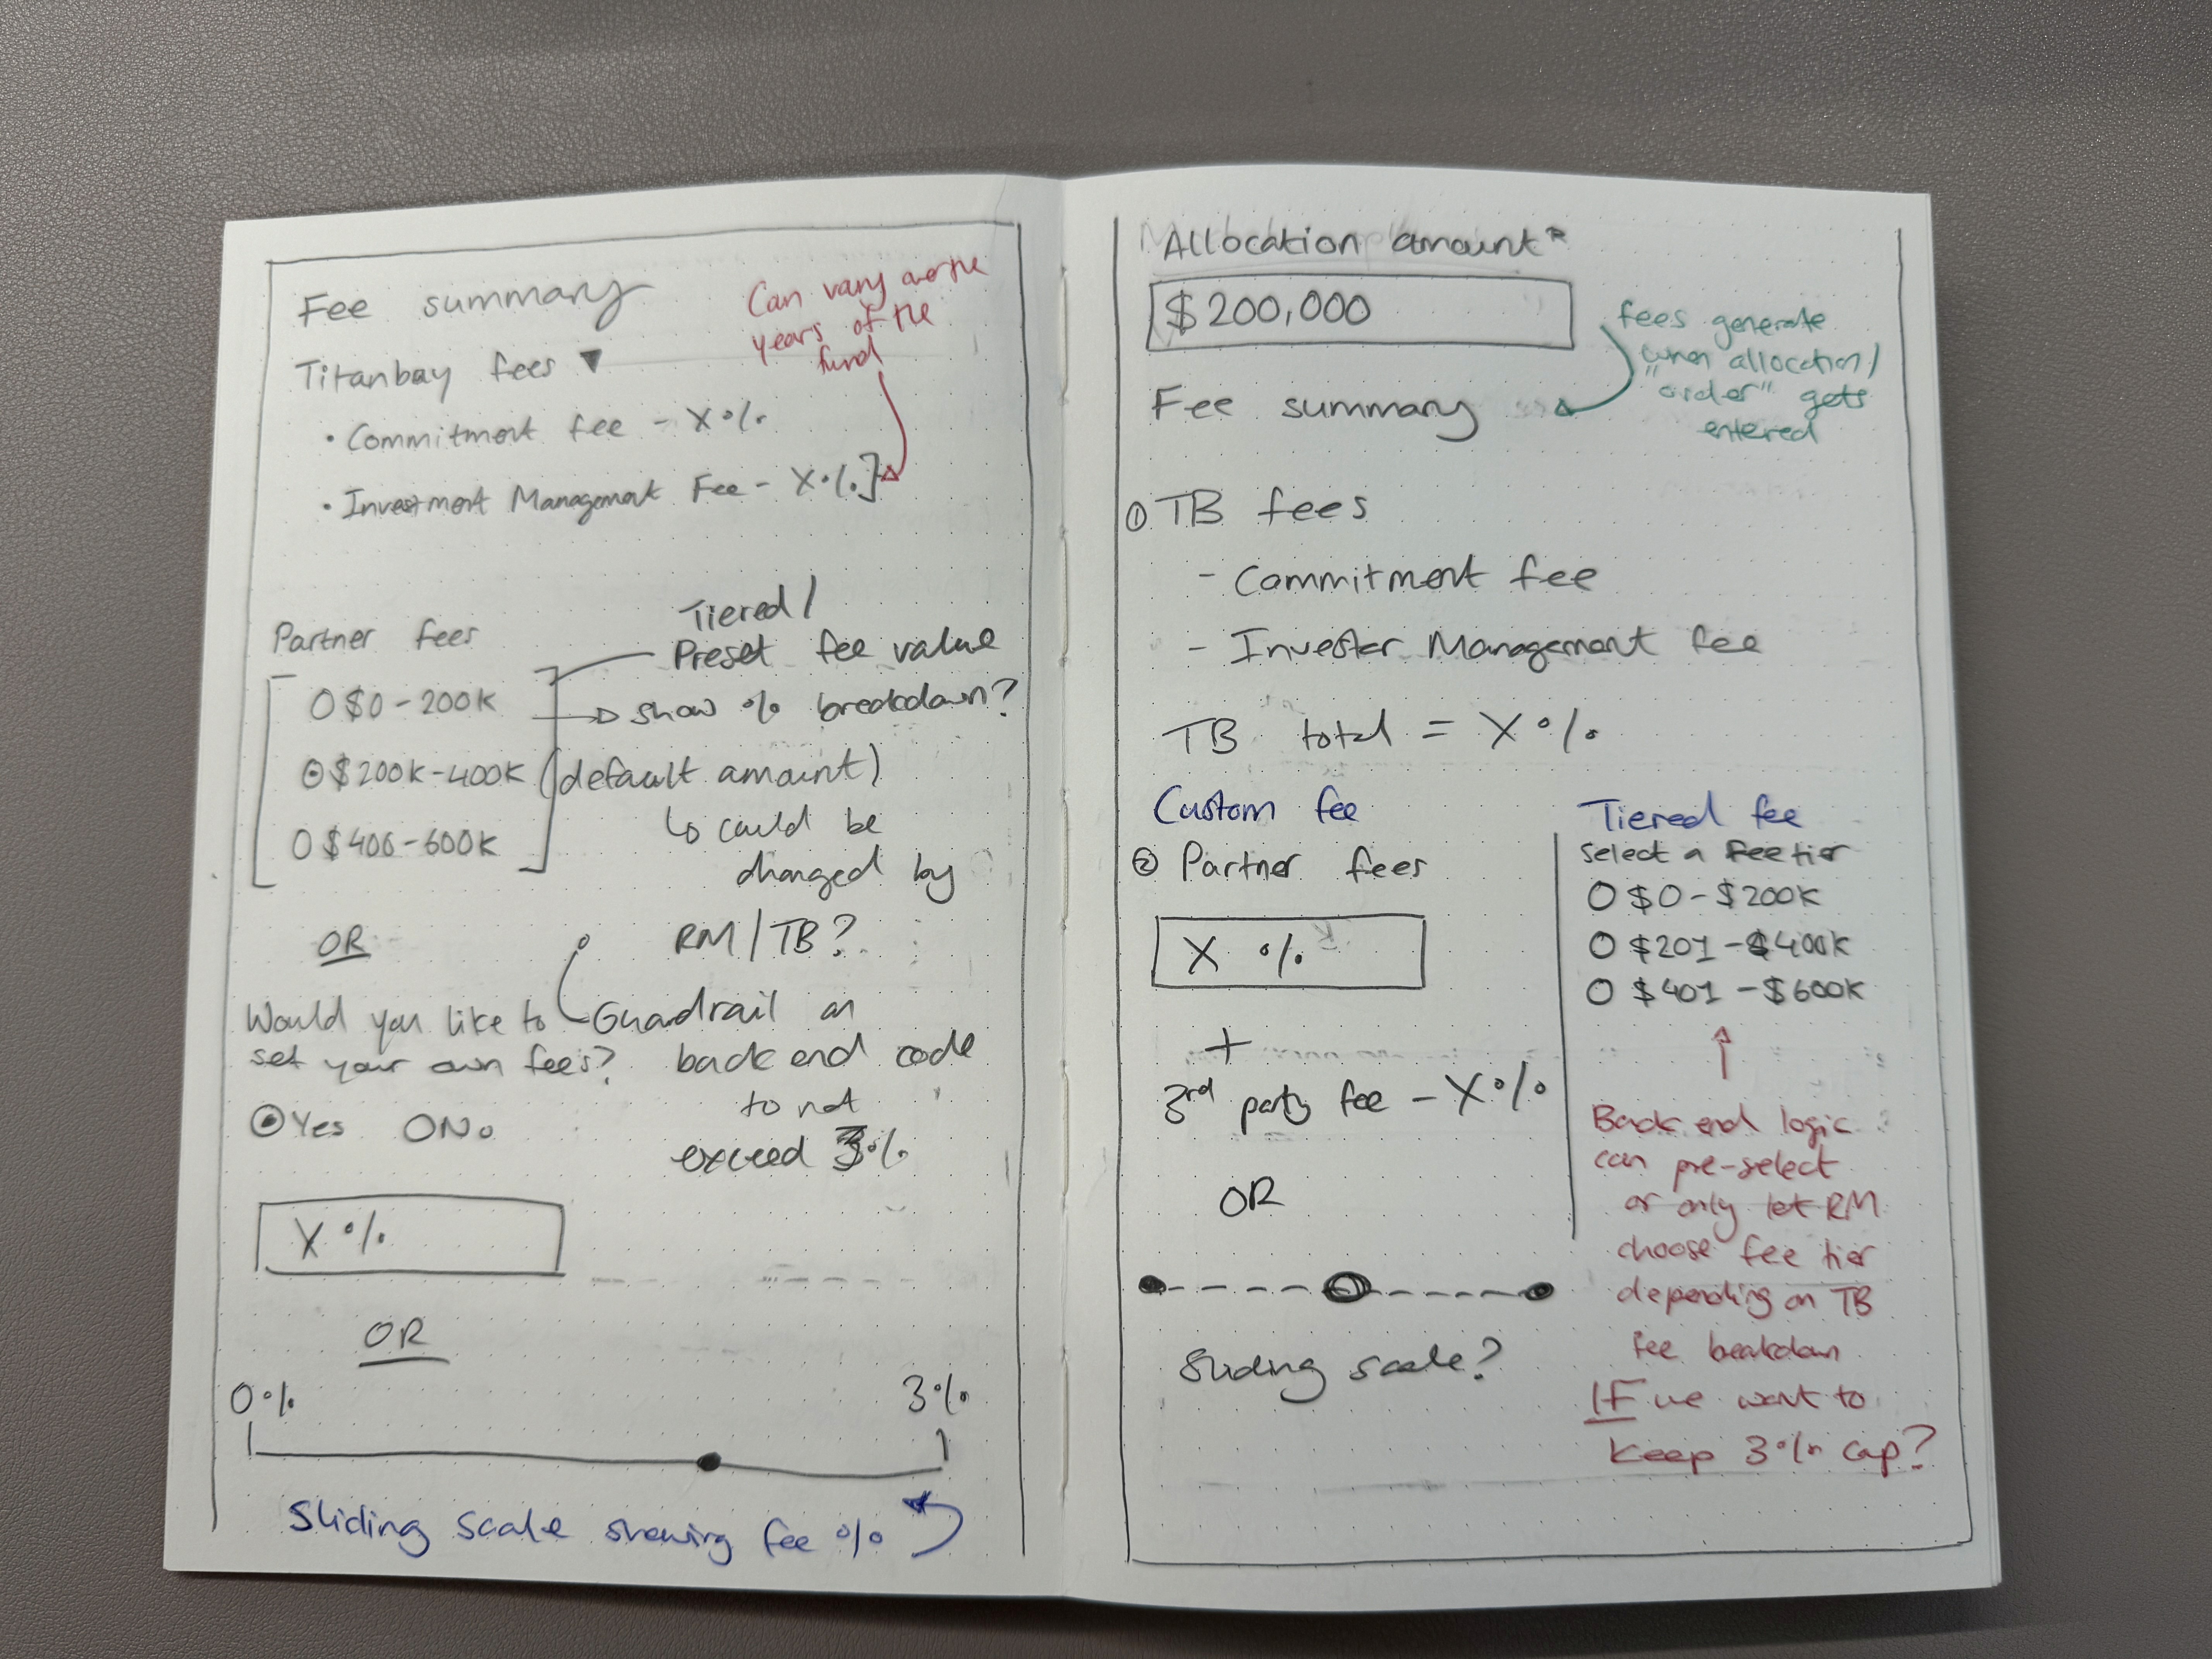 Fee summary
Can vary over the
years of the
fund
Titanbay fees ▼
• Commitment fee - X%
• Investment Management Fee - X%]
Partner fees
Tiered /
Preset fee value
O $0 - 200K
show % breakdown?
⊙ $200K - 400K (default amount)
O $400 - 600K
↳ could be
changed by
RM / TB?
OR
Would you like to
set your own fees?
Guardrail on
back end code
to not
exceed 3%
⊙ Yes O No
X %
OR
0% 3%
Sliding scale showing fee %
Allocation amount*
$200,000
fees generate
when allocation /
"order" gets
entered
Fee summary
① TB fees
- Commitment fee
- Investor Management fee
TB total = X%
Custom fee
② Partner fees
X %
+
3rd party fee - X%
OR
Sliding scale?
Tiered fee
Select a Fee tier
O $0 - $200K
O $201 - $400K
O $401 - $600K
Back end logic
can pre-select
or only let RM
choose fee tier
depending on TB
fee breakdown
IF we want to
keep 3% cap?